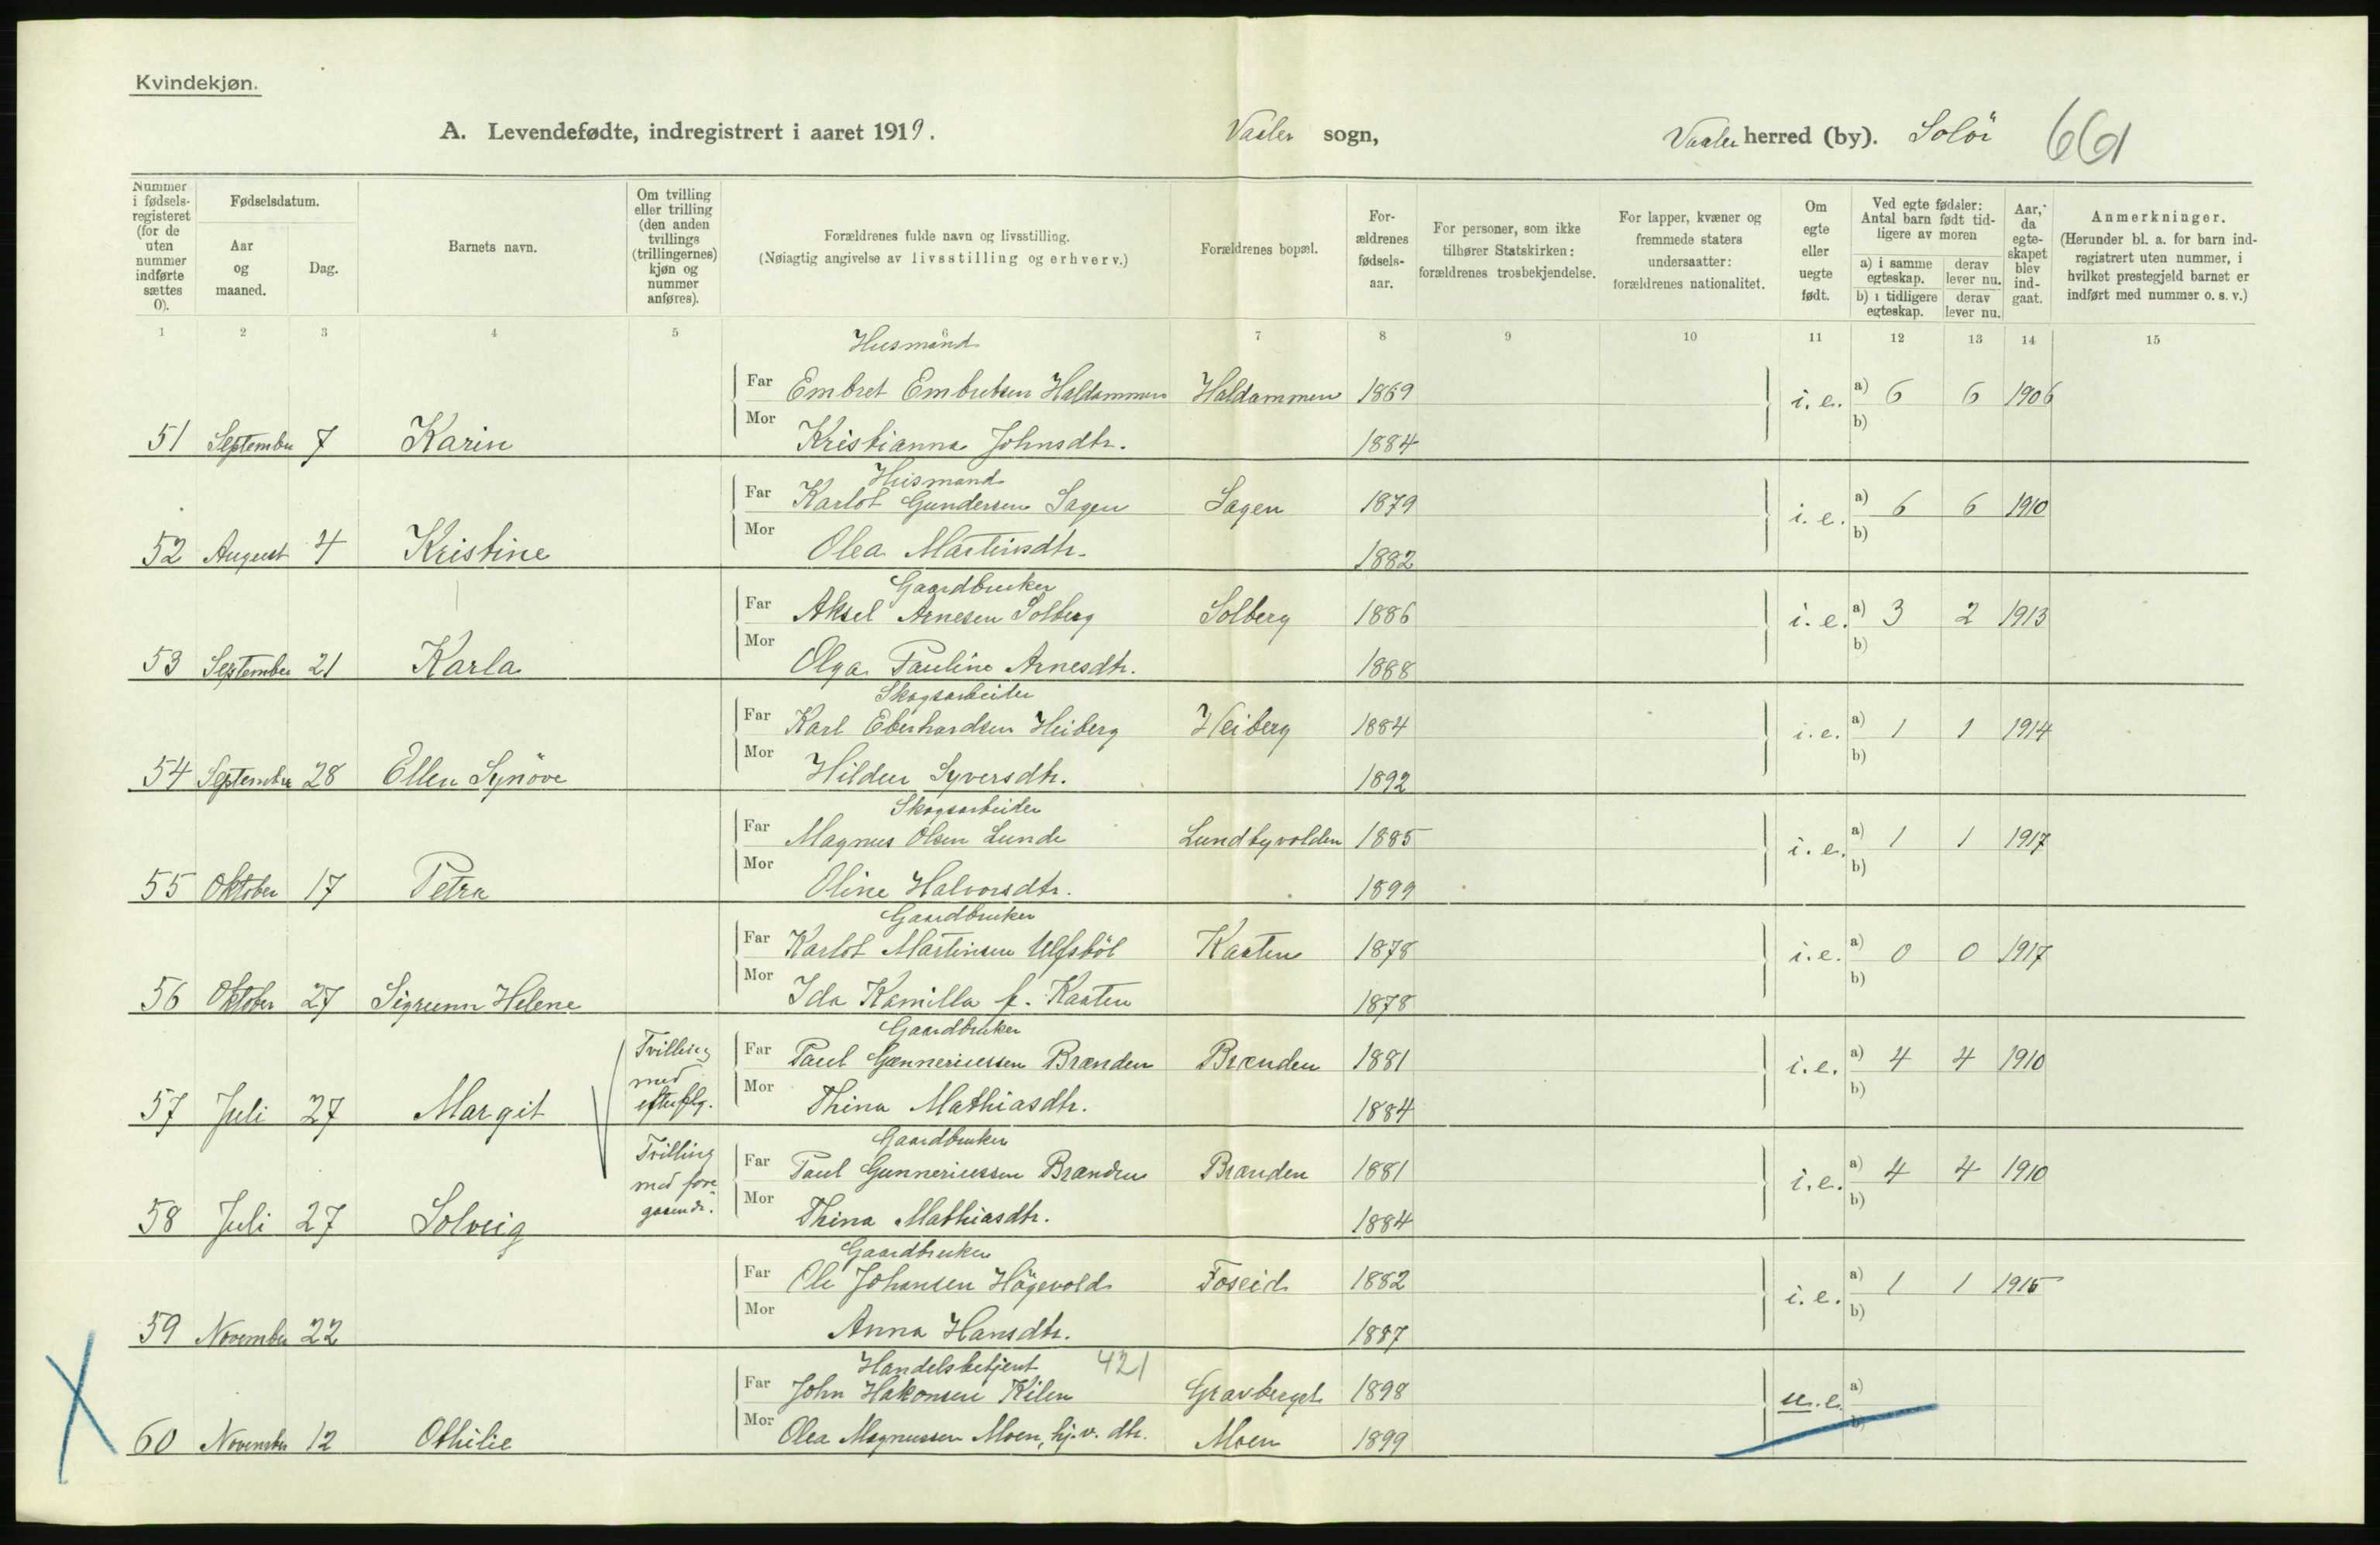 Kvindekjøn.
A. Levendefødte, indregistrert i aaret 1919. Vaaler sogn, Vaaler herred (by). Solör 661
Nummer i fødsels-registeret (for de uten nummer indførte sættes 0).
Fødselsdatum.
Aar og maaned.
Dag.
Barnets navn.
Om tvilling eller trilling (den anden tvillings (trillingernes) kjøn og nummer anføres).
Forældrenes fulde navn og livsstilling.
(Nøiagtig angivelse av livsstilling og erhverv.)
Forældrenes bopæl.
For-ældrenes fødsels-aar.
For personer, som ikke tilhører Statskirken: forældrenes trosbekjendelse.
For lapper, kvæner og fremmede staters undersaatter: forældrenes nationalitet.
Om egte eller uegte født.
Ved egte fødsler: Antal barn født tid-ligere av moren
a) i samme egteskap.
derav lever nu.
b) i tidligere egteskap.
derav lever nu.
Aar, da egte-skapet blev ind-gaat.
Anmerkninger.
(Herunder bl. a. for barn ind-registrert uten nummer, i hvilket prestegjeld barnet er indført med nummer o. s. v.)
1 2 3 4 5 6 7 8 9 10 11 12 13 14 15
Husmand
Far Embret Embretsen Haldammen Haldammen 1869 i. e. a) 6 6 1906
Mor b)
51 September 7 Karin Kristianna Johnsdtr. 1884
Husmand
Far Karlot Gundersen Sagen Sagen 1879 i. e. a) 6 6 1910
Mor b)
52 August 4 Kristine Olea Martinsdtr. 1882
Gaardbruker
Far Aksel Arnesen Solberg Solberg 1886 i. e. a) 3 2 1913
Mor b)
53 September 21 Karla Olga Pauline Arnesdtr. 1888
Skogsarbeider
Far Karl Eberhardsen Heiberg Heiberg 1884 i. e. a) 1 1 1914
Mor b)
54 September 28 Ellen Synöve Hildur Syversdtr. 1892
Skogsarbeider
Far Magnus Olsen Lunde Lundbyvolden 1885 i. e. a) 1 1 1917
Mor b)
55 Oktober 17 Petra Oline Halvorsdtr. 1899
Gaardbruker
Far Karlot Martinsen Ulfsböl Kaaten 1878 i. e. a) 0 0 1917
Mor b)
56 Oktober 27 Sigrunn Helene Ida Kamilla f. Kaaten 1878
Gaardbruker
Tvilling med efterflg.
Far Paul Gunneriussen Brænden Brænden 1881 i. e. a) 4 4 1910
Mor b)
57 Juli 27 Margit Thina Mathiasdtr. 1884
Gaardbruker
Tvilling med fore gaaende.
Far Paul Gunneriussen Brænden Brænden 1881 i. e. a) 4 4 1910
Mor b)
58 Juli 27 Solveig Thina Mathiasdtr. 1884
Gaardbruker
Far Ole Johansen Högevold Foseid 1882 i. e. a) 1 1 1915
Mor b)
59 November 22 Anna Hansdtr. 1887
Handelsbetjent 421
Far John Hakonsen Kilen Gravberget 1898 u. e. a)
Mor b)
60 November 12 Othilie Olea Magnussen Moen, hj. v. dtr. Moen 1899